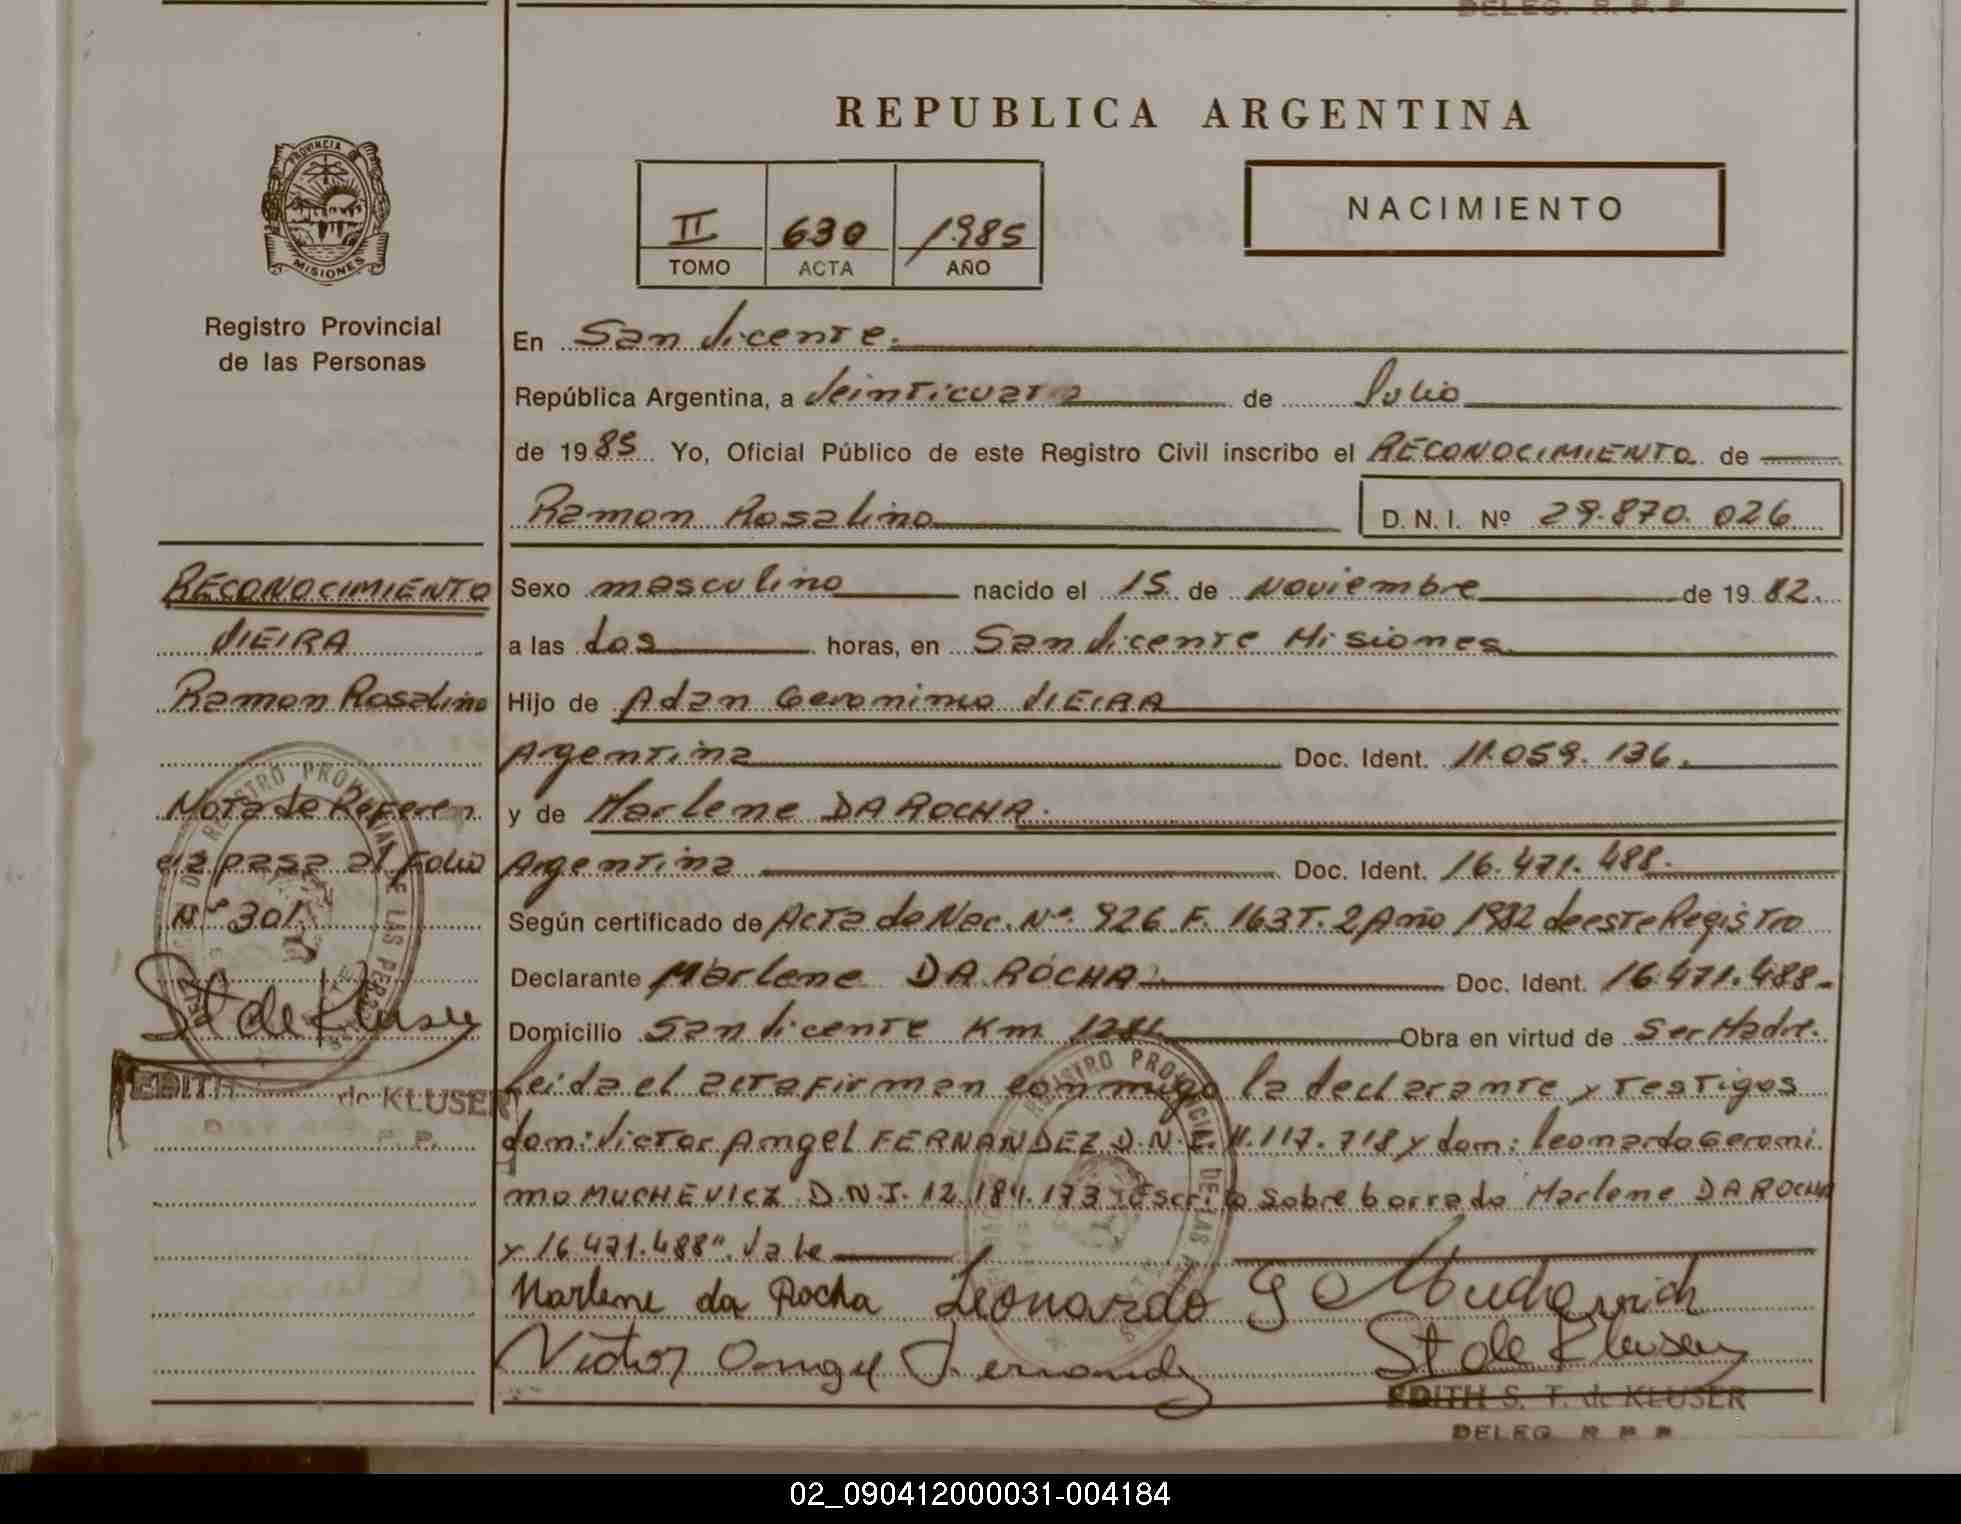 DELEG. R. P. P.
REPUBLICA ARGENTINA
PROVINCIA DE
MISIONES
Registro Provincial
de las Personas
II 630 1985
TOMO ACTA AÑO
NACIMIENTO
En San Vicente.
República Argentina, a Veinticuatro de Julio
de 1985 Yo, Oficial Público de este Registro Civil inscribo el RECONOCIMIENTO de
Ramon Rosalino D. N. I. Nº 29.870.026
Sexo masculino nacido el 15 de Noviembre de 1982.
a las dos horas, en San Vicente Misiones
Hijo de Adan Geronimo VIEIRA
Argentina Doc. Ident. 11.059.136.
y de Marlene DA ROCHA.
Argentina Doc. Ident. 16.471.488.
Según certificado de Acta de Nac. Nº 926 F. 163 T. 2 Año 1982 de este Registro
Declarante Marlene DA ROCHA. Doc. Ident. 16.471.488-
Domicilio San Vicente Km 1281 Obra en virtud de Ser Madre.
Leida el acta firman conmigo la declarante y testigos
don: Victor Angel FERNANDEZ D.N.I. 11.117.718 y don: Leonardo Geroni
mo MUCHEVICZ D.N.I. 12.184.173 "Escrito sobre borrado Marlene DA ROCHA
y 16.471.488". Vale
Marlene da Rocha Leonardo G Muchevich
Victor Angel Fernandez St de Kluser
EDITH S. T. de KLUSER
DELEG. R. P. P.
RECONOCIMIENTO
VIEIRA
Ramon Rosalino
Nota de Referen
cia pasa al Folio
Nº 301
St de Kluser
EDITH de KLUSER
R. P.
REGISTRO PROVINCIAL DE LAS PERSONAS
REGISTRO PROVINCIAL DE LAS
02_090412000031-004184